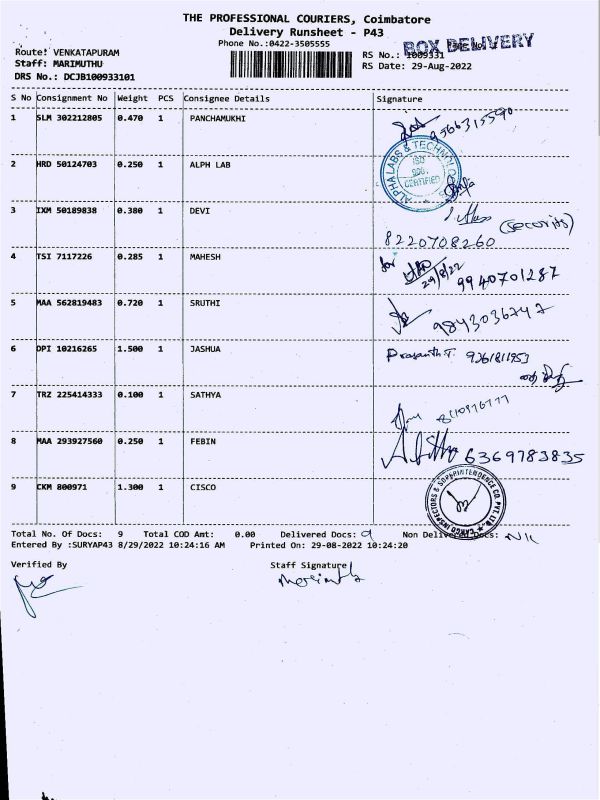 THE PROFESSIONAL COURIERS, Coimbatore
Delivery Runsheet - P43
Phone No.:0422-3505555
BOX DELIVERY
Route: VENKATAPURAM
RS No.: 1009331
Staff: MARIMUTHU
RS Date: 29-Aug-2022
DRS No.: DCJB100933101
S No Consignment No Weight PCS Consignee Details Signature
1 SLM 302212805 0.470 1 PANCHAMUKHI 9566315590
2 HRD 50124703 0.250 1 ALPH LAB
ALPHA LABS & TECHNOLOGIES
ISO
CERTIFIED
3 IXM 50189838 0.380 1 DEVI
(security)
8220708260
4 TSI 7117226 0.285 1 MAHESH for
29/8/22 9940701287
5 MAA 562819483 0.720 1 SRUTHI 9843036747
6 DPI 10216265 1.500 1 JASHUA Prasanth T. 9261811953
7 TRZ 225414333 0.100 1 SATHYA
8 MAA 293927560 0.250 1 FEBIN 6369783835
9 CKM 800971 1.300 1 CISCO
CARGO INSPECTORS & SUPERINTENDENCE CO. PVT. LTD.
Total No. Of Docs: 9 Total COD Amt: 0.00 Delivered Docs: 9 Non Delivered Docs: Nil
Entered By :SURYAP43 8/29/2022 10:24:16 AM Printed On: 29-08-2022 10:24:20
Verified By Staff Signature